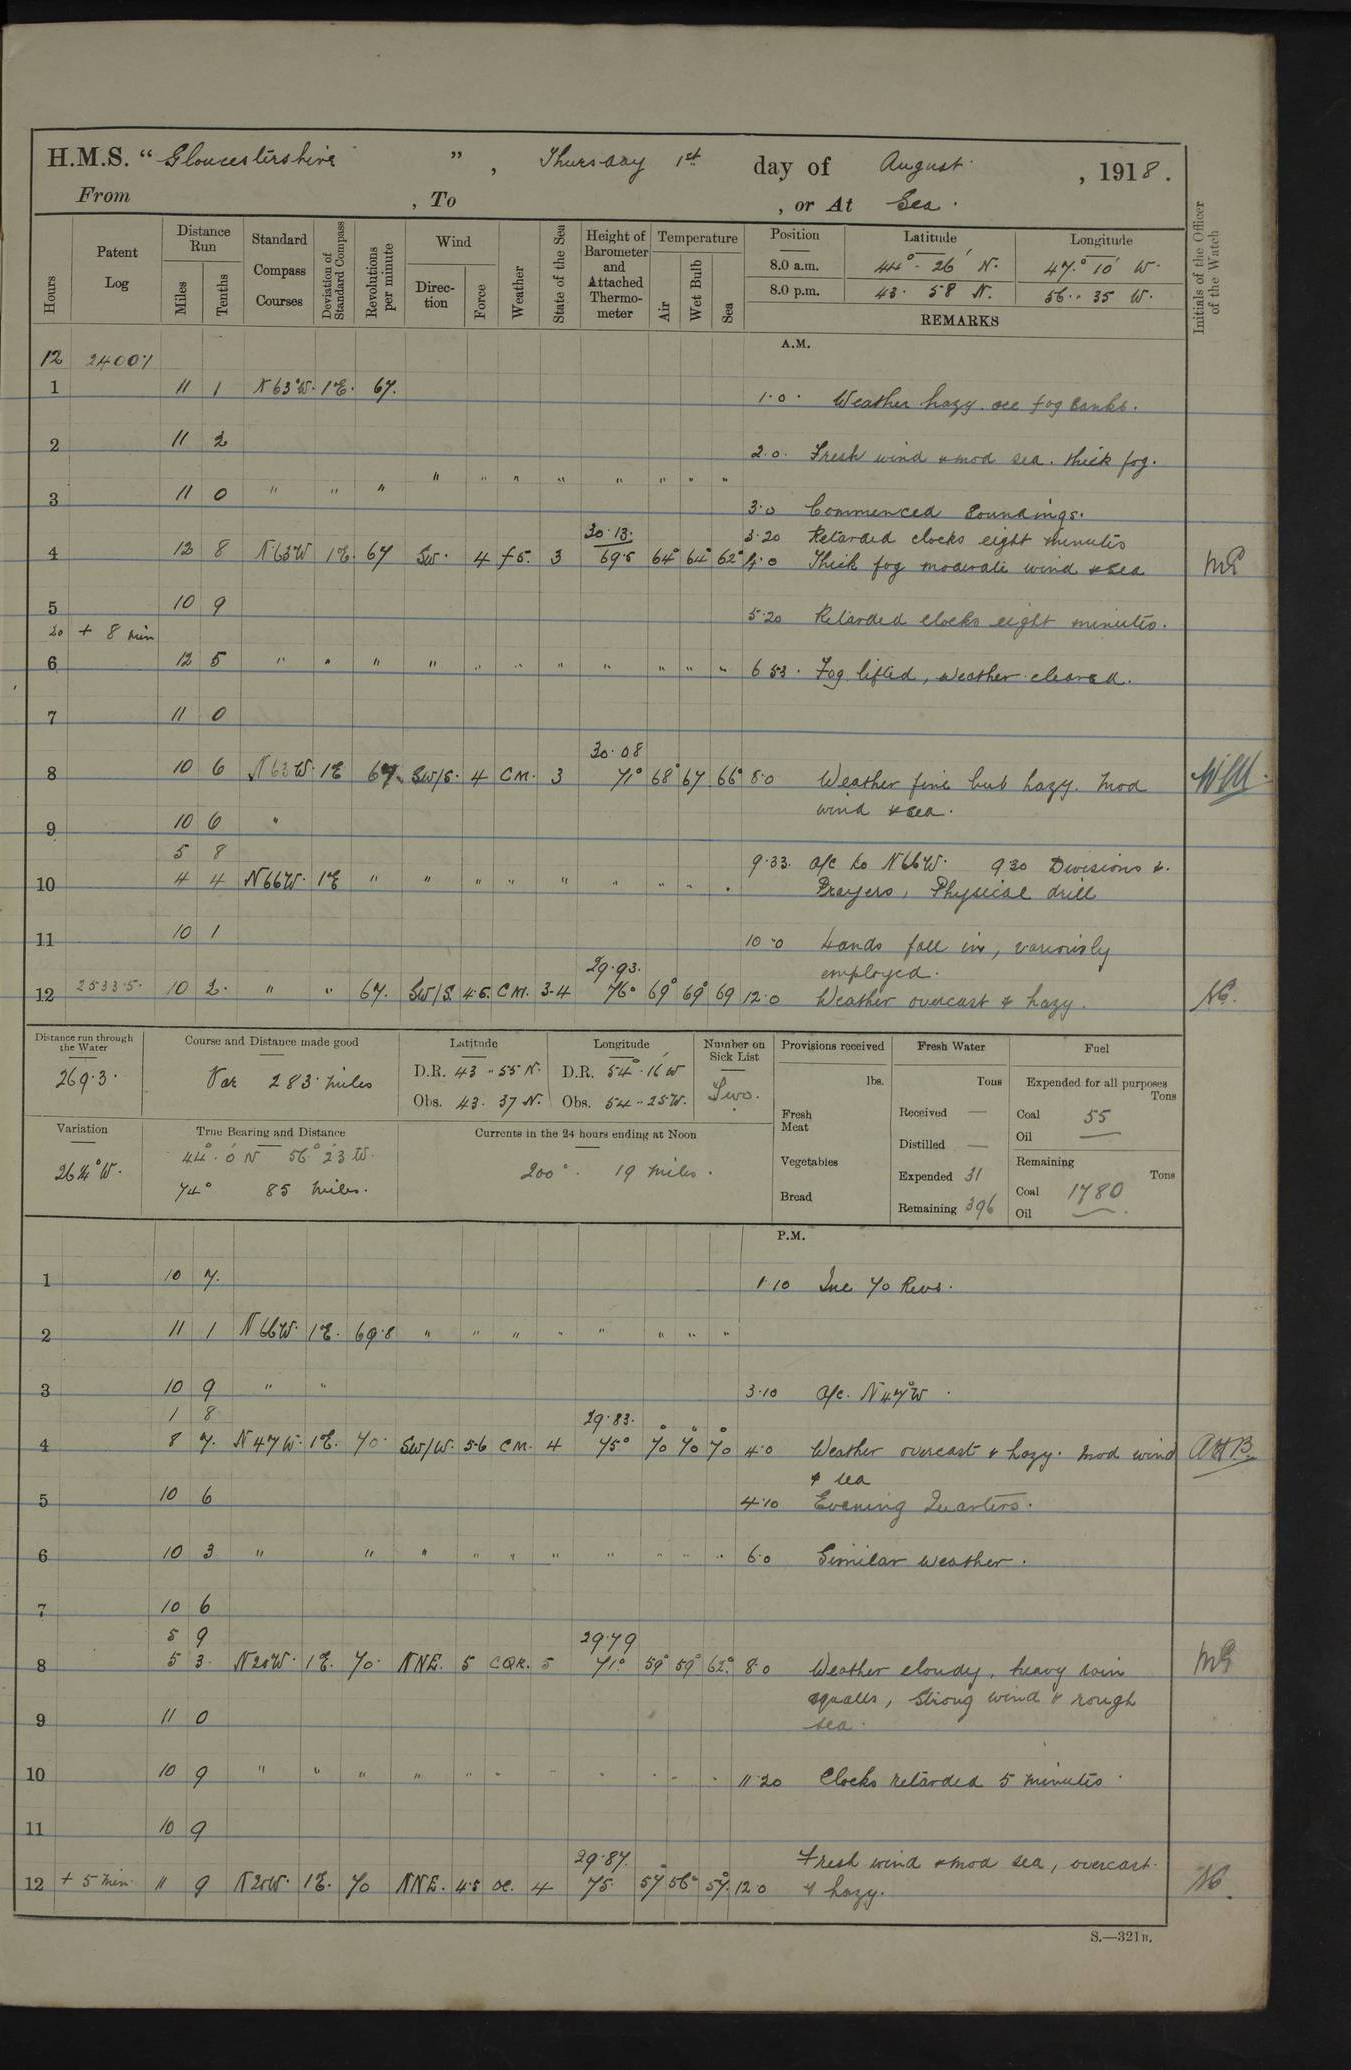 H.M.S. “Gloucestershire”, Thursday 1st day of August, 1918.
From , To , or At Sea.
Hours
Patent Log
Distance Run
Miles
Tenths
Standard Compass Courses
Deviation of Standard Compass
Revolutions per minute
Wind
Direction
Force
Weather
State of the Sea
Height of Barometer and Attached Thermometer
Temperature
Air
Wet Bulb
Sea
Position Latitude Longitude
8.0 a.m. 44° 26' N. 47° 10' W.
8.0 p.m. 43 58 N. 56 35 W.
REMARKS
Initials of the Officer of the Watch
A.M.
12 2400·1
1 11 1 N63°W. 1°E. 67. 1·0 Weather hazy. occ fog banks.
2 11 2 2.0. Fresh wind & mod sea. thick fog.
" " " " " " " " " " "
3 11 0 3·0 Commenced Soundings.
30·13. 3·20 Retarded clocks eight minutes
4 12 8 N63W 1E. 67 SW. 4 3 69·5 64° 64° 62° 4·0 Thick fog moderate wind & sea
5 10 9 5·20 Retarded clocks eight minutes.
20 + 8 min
6 12 5 " " " " " " " " " " " 6 53. Fog lifted, weather cleared.
7 11 0
30·08
8 10 6 N63W. 1E 67. SW/S. 4 CM. 3 71° 68° 67 66° 8·0 Weather fine but hazy. Mod
wind & sea.
9 10 6 "
5 8 9·33. a/c to N66W. 930 Divisions &
10 4 4 N66W. 1E " " " " " " " " " Prayers, Physical drill
11 10 1 10·0 Hands fall in, variously
29·93. employed.
12 2533·5. 10 2. " " 67. SW/S. 4·5. CM. 3·4 76° 69° 69° 69 12·0 Weather overcast & hazy.
Distance run through the Water
269·3.
Course and Distance made good
Var 283 miles
Latitude
D.R. 43 55 N.
Obs. 43. 37 N.
Longitude
D.R. 54° 16' W
Obs. 54 25 W.
Number on Sick List
Two.
Provisions received
lbs.
Fresh Meat
Vegetables
Bread
Fresh Water
Tons
Received —
Distilled —
Expended 31
Remaining 396
Fuel
Expended for all purposes
Tons
Coal 55
Oil —
Remaining
Tons
Coal 1780
Oil —
Variation
26¼°W.
True Bearing and Distance
44° 0' N 56° 23' W.
74° 85 miles.
Currents in the 24 hours ending at Noon
200°. 19 miles.
P.M.
1 10 7. 1·10 Inc 70 Revs.
2 11 1 N66W. 1E. 69·8 " " " " " " " "
3 10 9 " " 3·10 a/c. N47°W
1 8 29·83.
4 8 7. N47W. 1E. 70. SW/W. 5·6 CM. 4 75° 70° 70° 70° 4·0 Weather overcast & hazy. Mod wind A.H.B.
& sea
5 10 6 4·10 Evening Quarters.
6 10 3 " " " " " " " " " " 6·0 Similar weather.
7 10 6
5 9 29·79
8 5 3. N20W. 1E. 70. NNE. 5 CQR. 5 71° 59° 59° 62° 8·0 Weather cloudy, heavy rain
squalls, strong wind & rough
9 11 0 sea.
10 10 9 " " " " " " " " " " " 11·20 Clocks retarded 5 minutes.
11 10 9
29·87. Fresh wind & mod sea, overcast
12 + 5 min. 11 9 N20W. 1E. 70 NNE. 4·5 oc. 4 75. 57° 56° 57° 12·0 & hazy.
S.—321B.